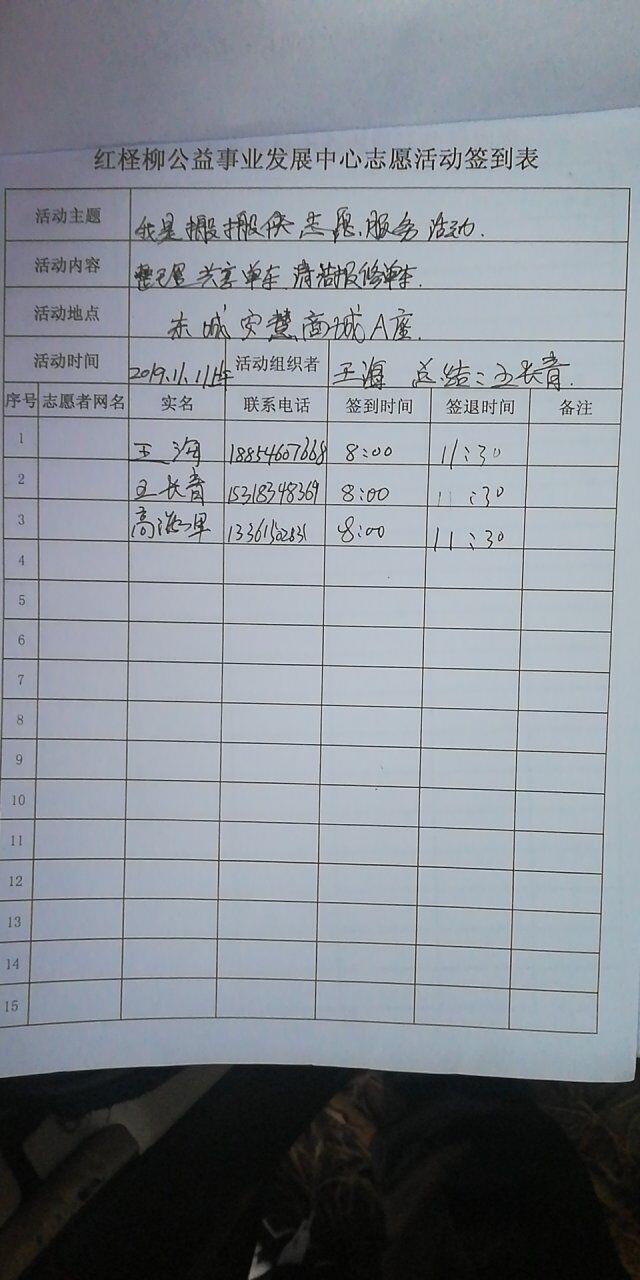 红柽柳公益事业发展中心志愿活动签到表
活动主题 我是搬搬侠志愿服务活动.
活动内容 整理 共享单车 清洁报修单车.
活动地点 东城 安慧商城A座.
活动时间 2019.11.11 活动组织者 王海 总结:王长青.
序号 志愿者网名 实名 联系电话 签到时间 签退时间 备注
1 王海 18854607668 8:00 11:30
2 王长青 15318348369 8:00 11:30
3 高 8:00 11:30
4
5
6
7
8
9
10
11
12
13
14
15